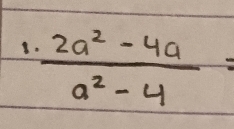 1. 2a² - 4a
a² - 4 =